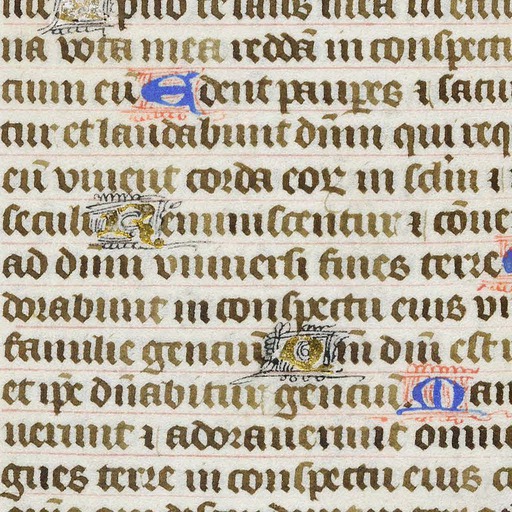 apud te laus mea in
na vota mea reddā in conspectu
cium eū Edent paupes ⁊ satu
tur et laudabunt dn̄m qui req
eū vivent corda eoꝝ in sclm
seculi Reminiscentur ⁊ cōue
ad dn̄m vniuersi fines terre
dorabunt in conspectu eius vn
familie genciū Qm̄ dn̄i est
et ip̄e dn̄abitur gencium. Man
uerunt ⁊ adorauerunt omn
gues terre in conspectu eius c